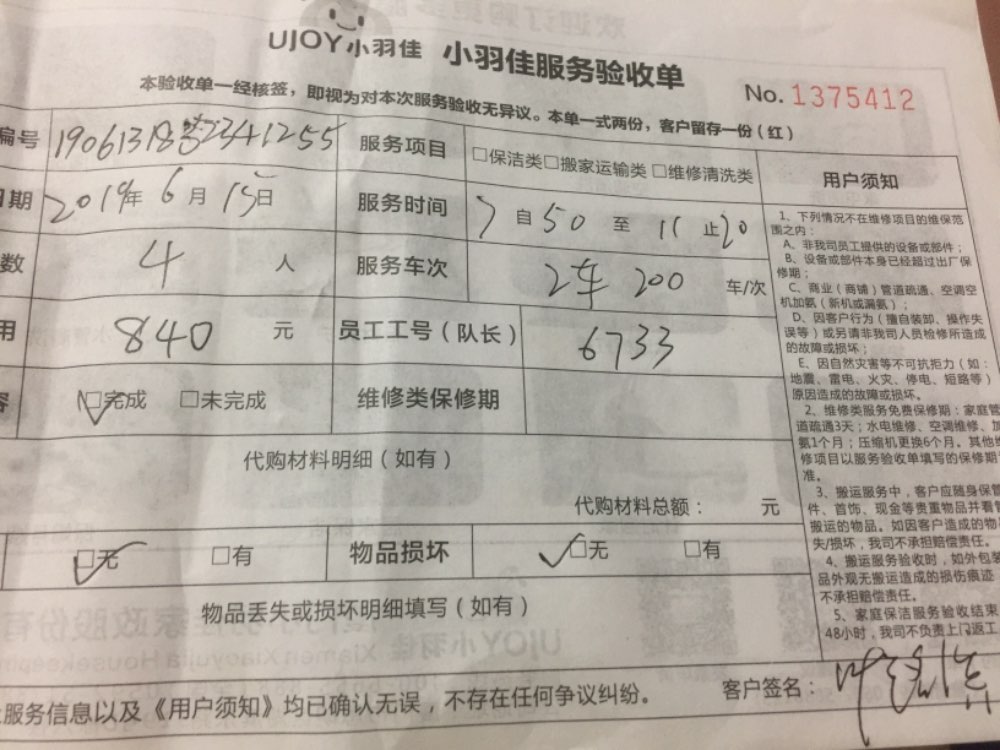 UJOY小羽佳 小羽佳服务验收单
No. 1375412
本验收单一经核签，即视为对本次服务验收无异议。本单一式两份，客户留存一份（红）
编号 服务项目 □保洁类□搬家运输类□维修清洗类
日期 2019年 6月 15日 服务时间 7自50至11止20
数 4 人 服务车次 2车 200 车/次
用 840 元 员工工号（队长） 6733
容 □完成 □未完成 维修类保修期
代购材料明细（如有）
代购材料总额： 元
□无 □有 物品损坏 □无 □有
物品丢失或损坏明细填写（如有）
服务信息以及《用户须知》均已确认无误，不存在任何争议纠纷。
客户签名：
用户须知
1、下列情况不在维修项目的维保范
围之内：
A、非我司员工提供的设备或部件；
B、设备或部件本身已经超过出厂保
修期；
C、商业（商铺）管道疏通、空调空
机加氨（新机或漏氨）；
D、因客户行为（擅自装卸、操作失
误等）或另请非我司人员检修所造成
的故障或损坏；
E、因自然灾害等不可抗拒力（如：
地震、雷电、火灾、停电、短路等）
原因造成的故障或损坏。
2、维修类服务免费保修期：家庭管
道疏通3天；水电维修、空调维修、加
氨1个月；压缩机更换6个月。其他维
修项目以服务验收单填写的保修期为
准。
3、搬运服务中，客户应随身保管
件、首饰、现金等贵重物品并看管
搬运的物品。如因客户造成的物
失/损坏，我司不承担赔偿责任。
4、搬运服务验收时，如外包装
品外观无搬运造成的损伤痕迹
不承担赔偿责任。
5、家庭保洁服务验收结束
48小时，我司不负责上门返工